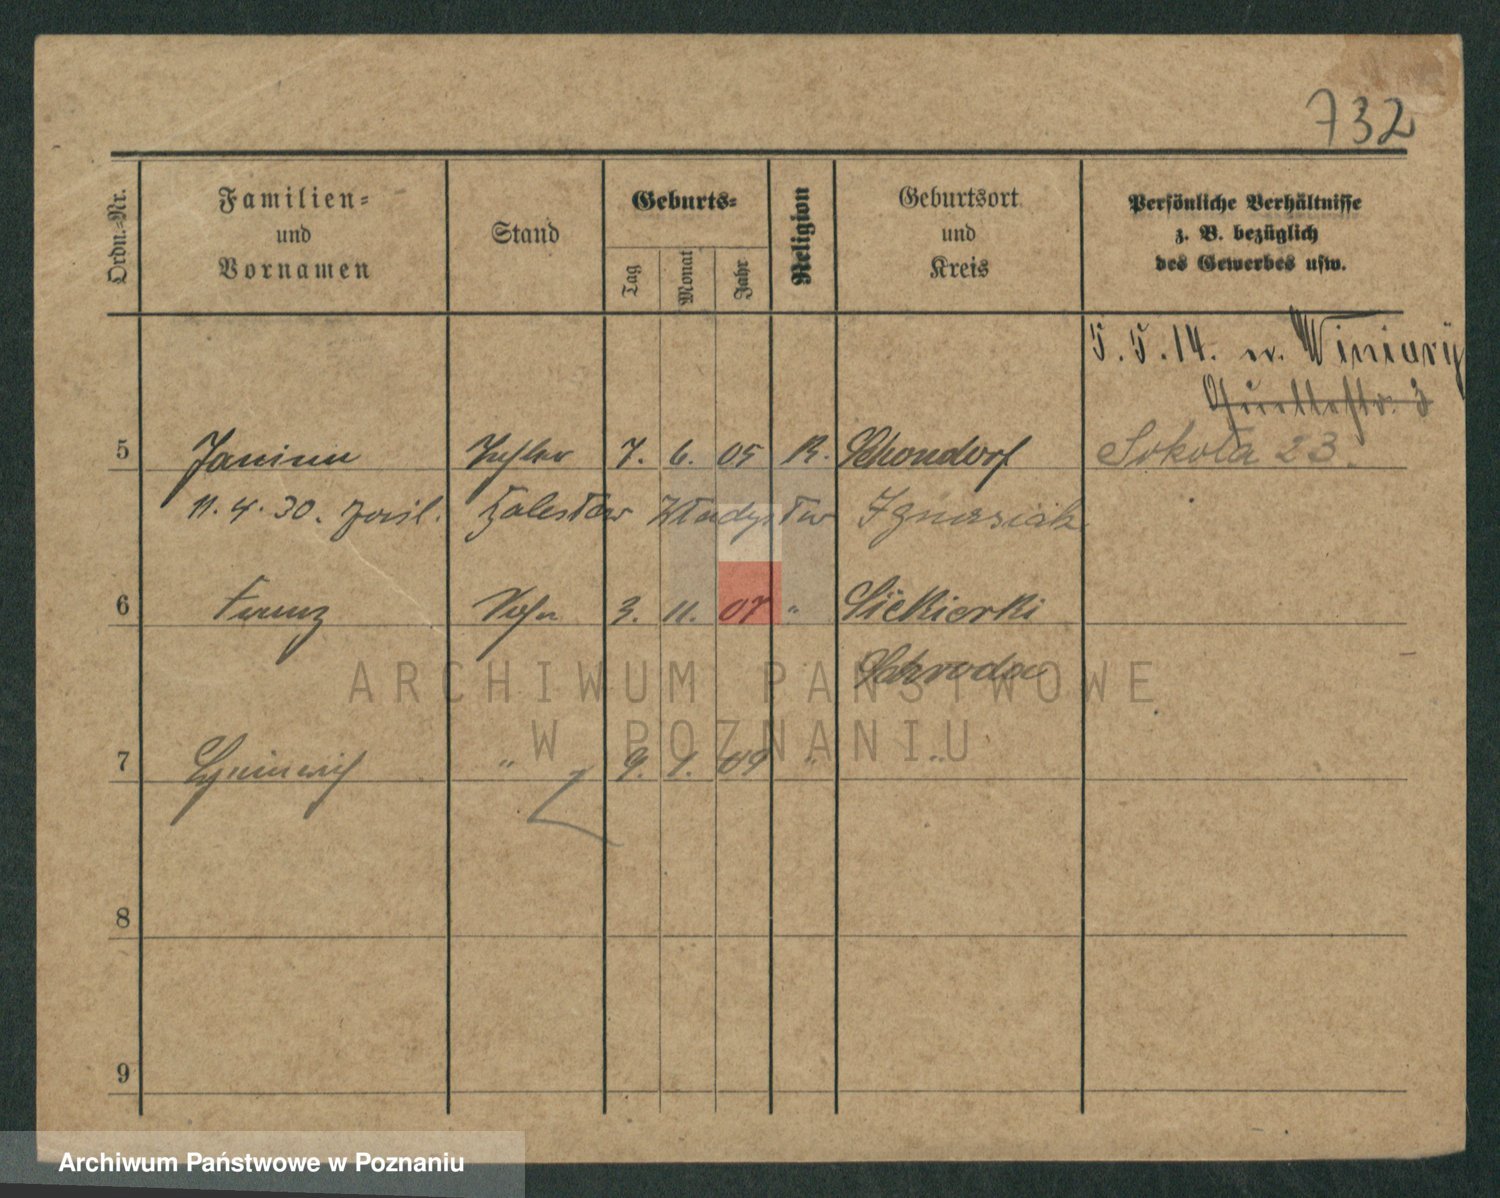 732
Ordn.-Nr. Familien- und Vornamen Stand Geburts- Tag Monat Jahr Religion Geburtsort und Kreis Persönliche Verhältnisse z. B. bezüglich des Gewerbes usw.
5.5.14. n. Winiary
5 Janina Tochter 7. 6. 05 R. Schondorf Sokoła 23.
11.4.30. Zalesław Władysław Ignasiak
6 Franz Sohn 3. 11. 07 " Siekierki
Schroda
7 Heinrich " 9. 1. 09 " "
8
9
ARCHIWUM PAŃSTWOWE
W POZNANIU
Archiwum Państwowe w Poznaniu